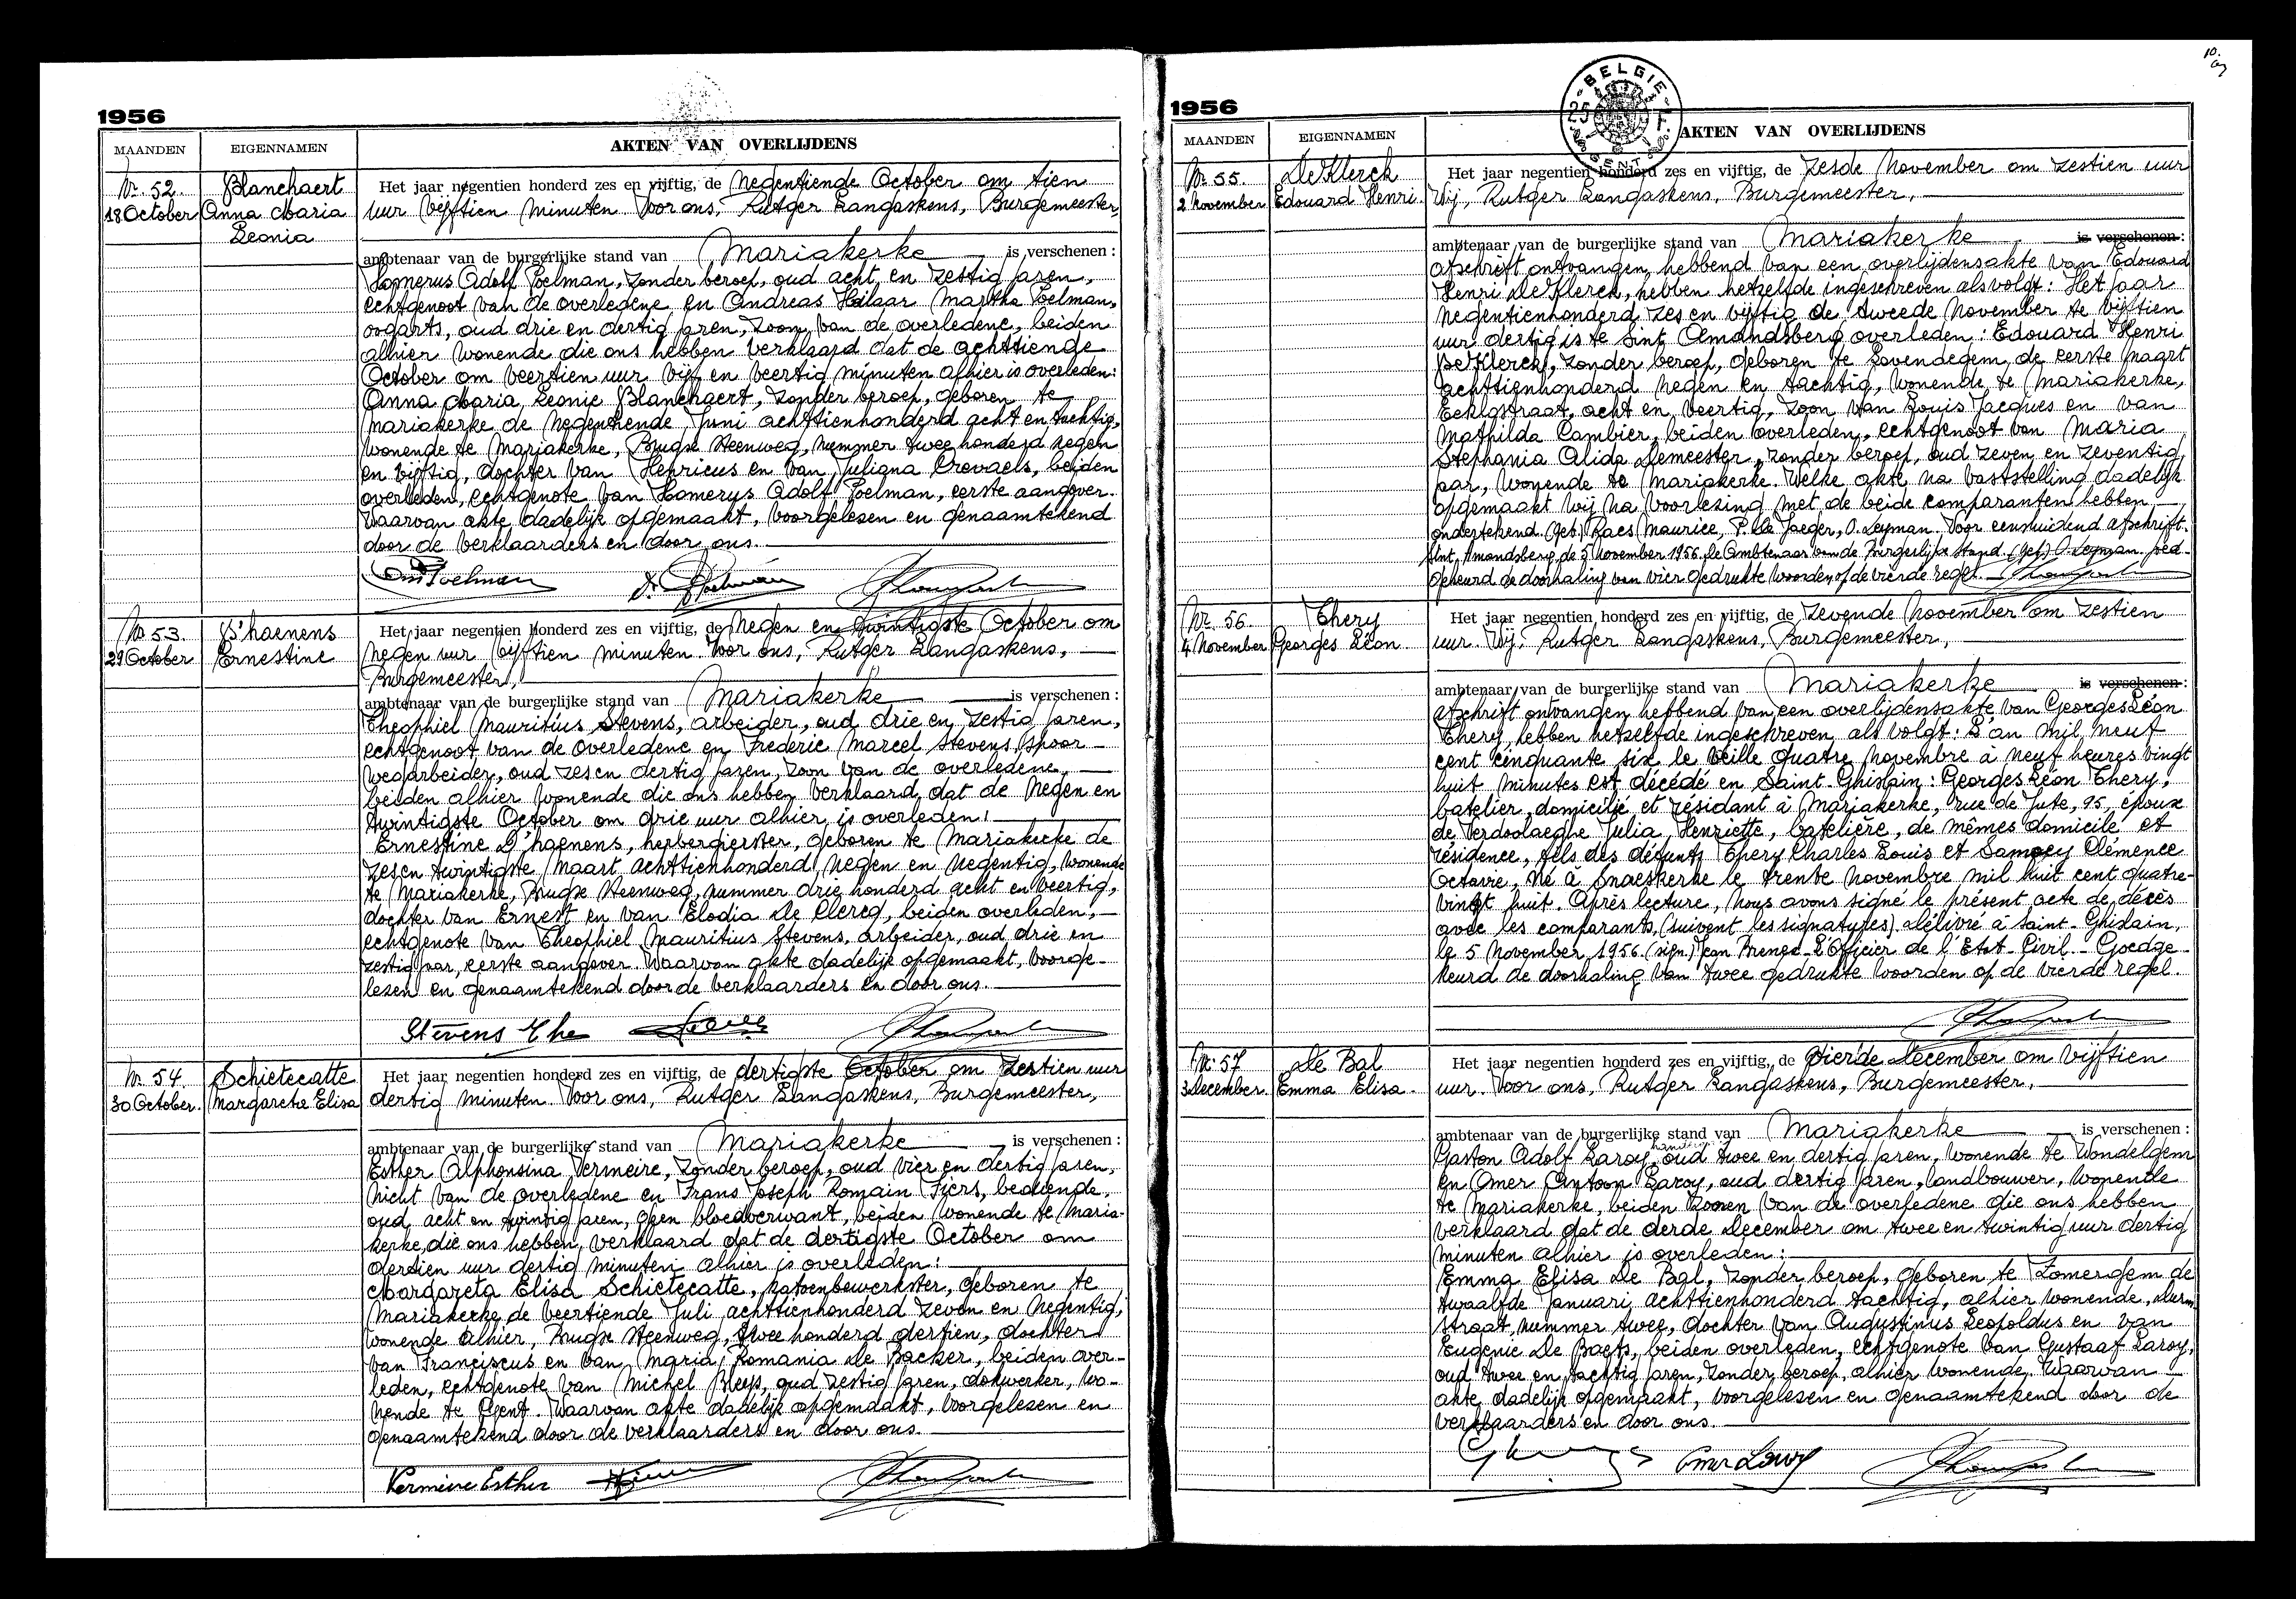 1956
MAANDEN EIGENNAMEN AKTEN VAN OVERLIJDENS
Nr. 52.
18 October
Blanchaert
Anna Maria
Leonia
Het jaar negentien honderd zes en vijftig, de negentiende October om tien
uur vijftien minuten voor ons, Rutger Langaskens, Burgemeester,
ambtenaar van de burgerlijke stand van Mariakerke is verschenen :
Homerus Adolf Poelman, zonder beroep, oud acht en zestig jaren,
echtgenoot van de overledene en Andreas Hilaar Martha Poelman,
oogarts, oud drie en dertig jaren, zoon van de overledene, beiden
alhier wonende die ons hebben verklaard dat de achttiende
October om veertien uur vijf en veertig minuten alhier is overleden:
Anna Maria Leonie Blanchaert, zonder beroep, geboren te
Mariakerke de negentiende Juni achttienhonderd acht en tachtig,
wonende te Mariakerke, Brugse Steenweg, nummer twee honderd negen
en vijftig, dochter van Henricus en van Juliana Crovaels, beiden
overleden, echtgenote van Homerus Adolf Poelman, eerste aangever.
Waarvan akte dadelijk opgemaakt, voorgelezen en genaamtekend
door de verklaarders en door ons.
Nr. 53.
29 October
D'haenens
Ernestine
Het jaar negentien honderd zes en vijftig, de negen en twintigste October om
negen uur vijftien minuten voor ons, Rutger Langaskens,
Burgemeester,
ambtenaar van de burgerlijke stand van Mariakerke is verschenen :
Theophiel Mauritius Stevens, arbeider, oud drie en zestig jaren,
echtgenoot van de overledene en Frederic Marcel Stevens, spoor-
wegarbeider, oud zes en dertig jaren, zoon van de overledene,
beiden alhier wonende die ons hebben verklaard dat de negen en
twintigste October om drie uur alhier is overleden:
Ernestine D'haenens, herbergierster, geboren te Mariakerke de
zes en twintigste Maart achttienhonderd negen en negentig, wonende
te Mariakerke, Brugse Steenweg, nummer drie honderd acht en veertig,
dochter van Ernest en van Elodia De Clercq, beiden overleden,
echtgenote van Theophiel Mauritius Stevens, arbeider, oud drie en
zestig jaar, eerste aangever. Waarvan akte dadelijk opgemaakt, voorge-
lezen en genaamtekend door de verklaarders en door ons.
Stevens The
Nr. 54.
30 October.
Schietecatte
Margareta Elisa
Het jaar negentien honderd zes en vijftig, de dertigste October om zestien uur
dertig minuten voor ons, Rutger Langaskens, Burgemeester,
ambtenaar van de burgerlijke stand van Mariakerke is verschenen :
Esther Alphonsina Vermeire, zonder beroep, oud vier en dertig jaren,
nicht van de overledene en Frans Joseph Romain Fiers, bediende,
oud acht en twintig jaren, geen bloedverwant, beiden wonende te Maria-
kerke, die ons hebben verklaard dat de dertigste October om
dertien uur dertig minuten alhier is overleden:
Margareta Elisa Schietecatte, katoenbewerkster, geboren te
Mariakerke de veertiende Juli achttienhonderd zeven en negentig,
wonende alhier, Brugse Steenweg, twee honderd dertien, dochter
van Franciscus en van Maria Romania De Backer, beiden over-
leden, echtgenote van Michel Buys, oud zestig jaren, dokwerker, wo-
nende te Gent. Waarvan akte dadelijk opgemaakt, voorgelezen en
genaamtekend door de verklaarders en door ons.
Vermeire Esther
1956
BELGIE
25 F
GENT
MAANDEN EIGENNAMEN AKTEN VAN OVERLIJDENS
Nr. 55.
2 November
De Klerck
Edouard Henri.
Het jaar negentien honderd zes en vijftig, de zesde November om zestien uur
Wij, Rutger Langaskens, Burgemeester,
ambtenaar van de burgerlijke stand van Mariakerke is verschenen :
afschrift ontvangen hebbend van een overlijdensakte van Edouard
Henri De Klerck, hebben hetzelfde ingeschreven als volgt: Het jaar
negentienhonderd zes en vijftig de tweede November te vijftien
uur dertig is te Sint Amandsberg overleden: Edouard Henri
De Klerck, zonder beroep, geboren te Lovendegem, de eerste Maart
achttienhonderd negen en tachtig, wonende te Mariakerke,
Eeklostraat, acht en veertig, zoon van Louis Jacques en van
Mathilda Cambier, beiden overleden, echtgenoot van Maria
Stephania Alida Demeester, zonder beroep, oud zeven en zeventig
jaar, wonende te Mariakerke. Welke akte na vaststelling dadelijk
opgemaakt wij na voorlezing met de beide comparanten hebben
ondertekend. (get) Raes Maurice, P. De Jaeger, O. Leyman. Voor eensluidend afschrift.
Sint Amandsberg, de 5 November 1956. De Ambtenaar van de Burgerlijke Stand. (get) O. Leyman. Goed-
gekeurd de doorhaling van vier gedrukte woorden op de vierde regel.
Nr. 56.
4 November
Thery
Georges Léon.
Het jaar negentien honderd zes en vijftig, de zevende November om zestien
uur. Wij, Rutger Langaskens, Burgemeester,
ambtenaar van de burgerlijke stand van Mariakerke is verschenen :
afschrift ontvangen hebbend van een overlijdensakte van Georges Léon
Thery, hebben hetzelfde ingeschreven als volgt: L'an mil neuf
cent cinquante six le veille quatre novembre à neuf heures vingt
huit minutes est décédé en Saint-Ghislain: Georges Léon Thery,
batelier, domicilié et résidant à Mariakerke, rue de Jute, 95, époux
de Verdoolaeghe Julia Henriette, batelière, de mêmes domicile et
résidence, fils des défunts Thery Charles Louis et Clémence
Octavie, né à Snaeskerke le trente novembre mil huit cent quatre-
vingt huit. Après lecture, nous avons signé le présent acte de décès
avec les comparants, (suivent les signatures). délivré à Saint-Ghislain,
le 5 November 1956. (sign) Jean L'Officier de l'Etat-Civil. Goedge-
keurd de doorhaling van twee gedrukte woorden op de vierde regel.
Nr. 57
3 December
De Bal
Emma Elisa.
Het jaar negentien honderd zes en vijftig, de vierde December om vijftien
uur. Voor ons, Rutger Langaskens, Burgemeester,
ambtenaar van de burgerlijke stand van Mariakerke is verschenen :
Gaston Adolf Laroy, oud twee en dertig jaren, wonende te Wondelgem
en Omer Antoon Laroy, oud dertig jaren, landbouwer, wonende
te Mariakerke, beiden zonen van de overledene die ons hebben
verklaard dat de derde December om twee en twintig uur dertig
minuten alhier is overleden:
Emma Elisa De Bal, zonder beroep, geboren te Zomergem de
twaalfde Januari achttienhonderd tachtig, alhier wonende,
straat, nummer twee, dochter van Augustinus Leopoldus en van
Eugenie De Baets, beiden overleden, echtgenote van Gustaaf Laroy,
oud twee en tachtig jaren, zonder beroep, alhier wonende. Waarvan
akte dadelijk opgemaakt, voorgelezen en genaamtekend door de
verklaarders en door ons.
Omer Laroy